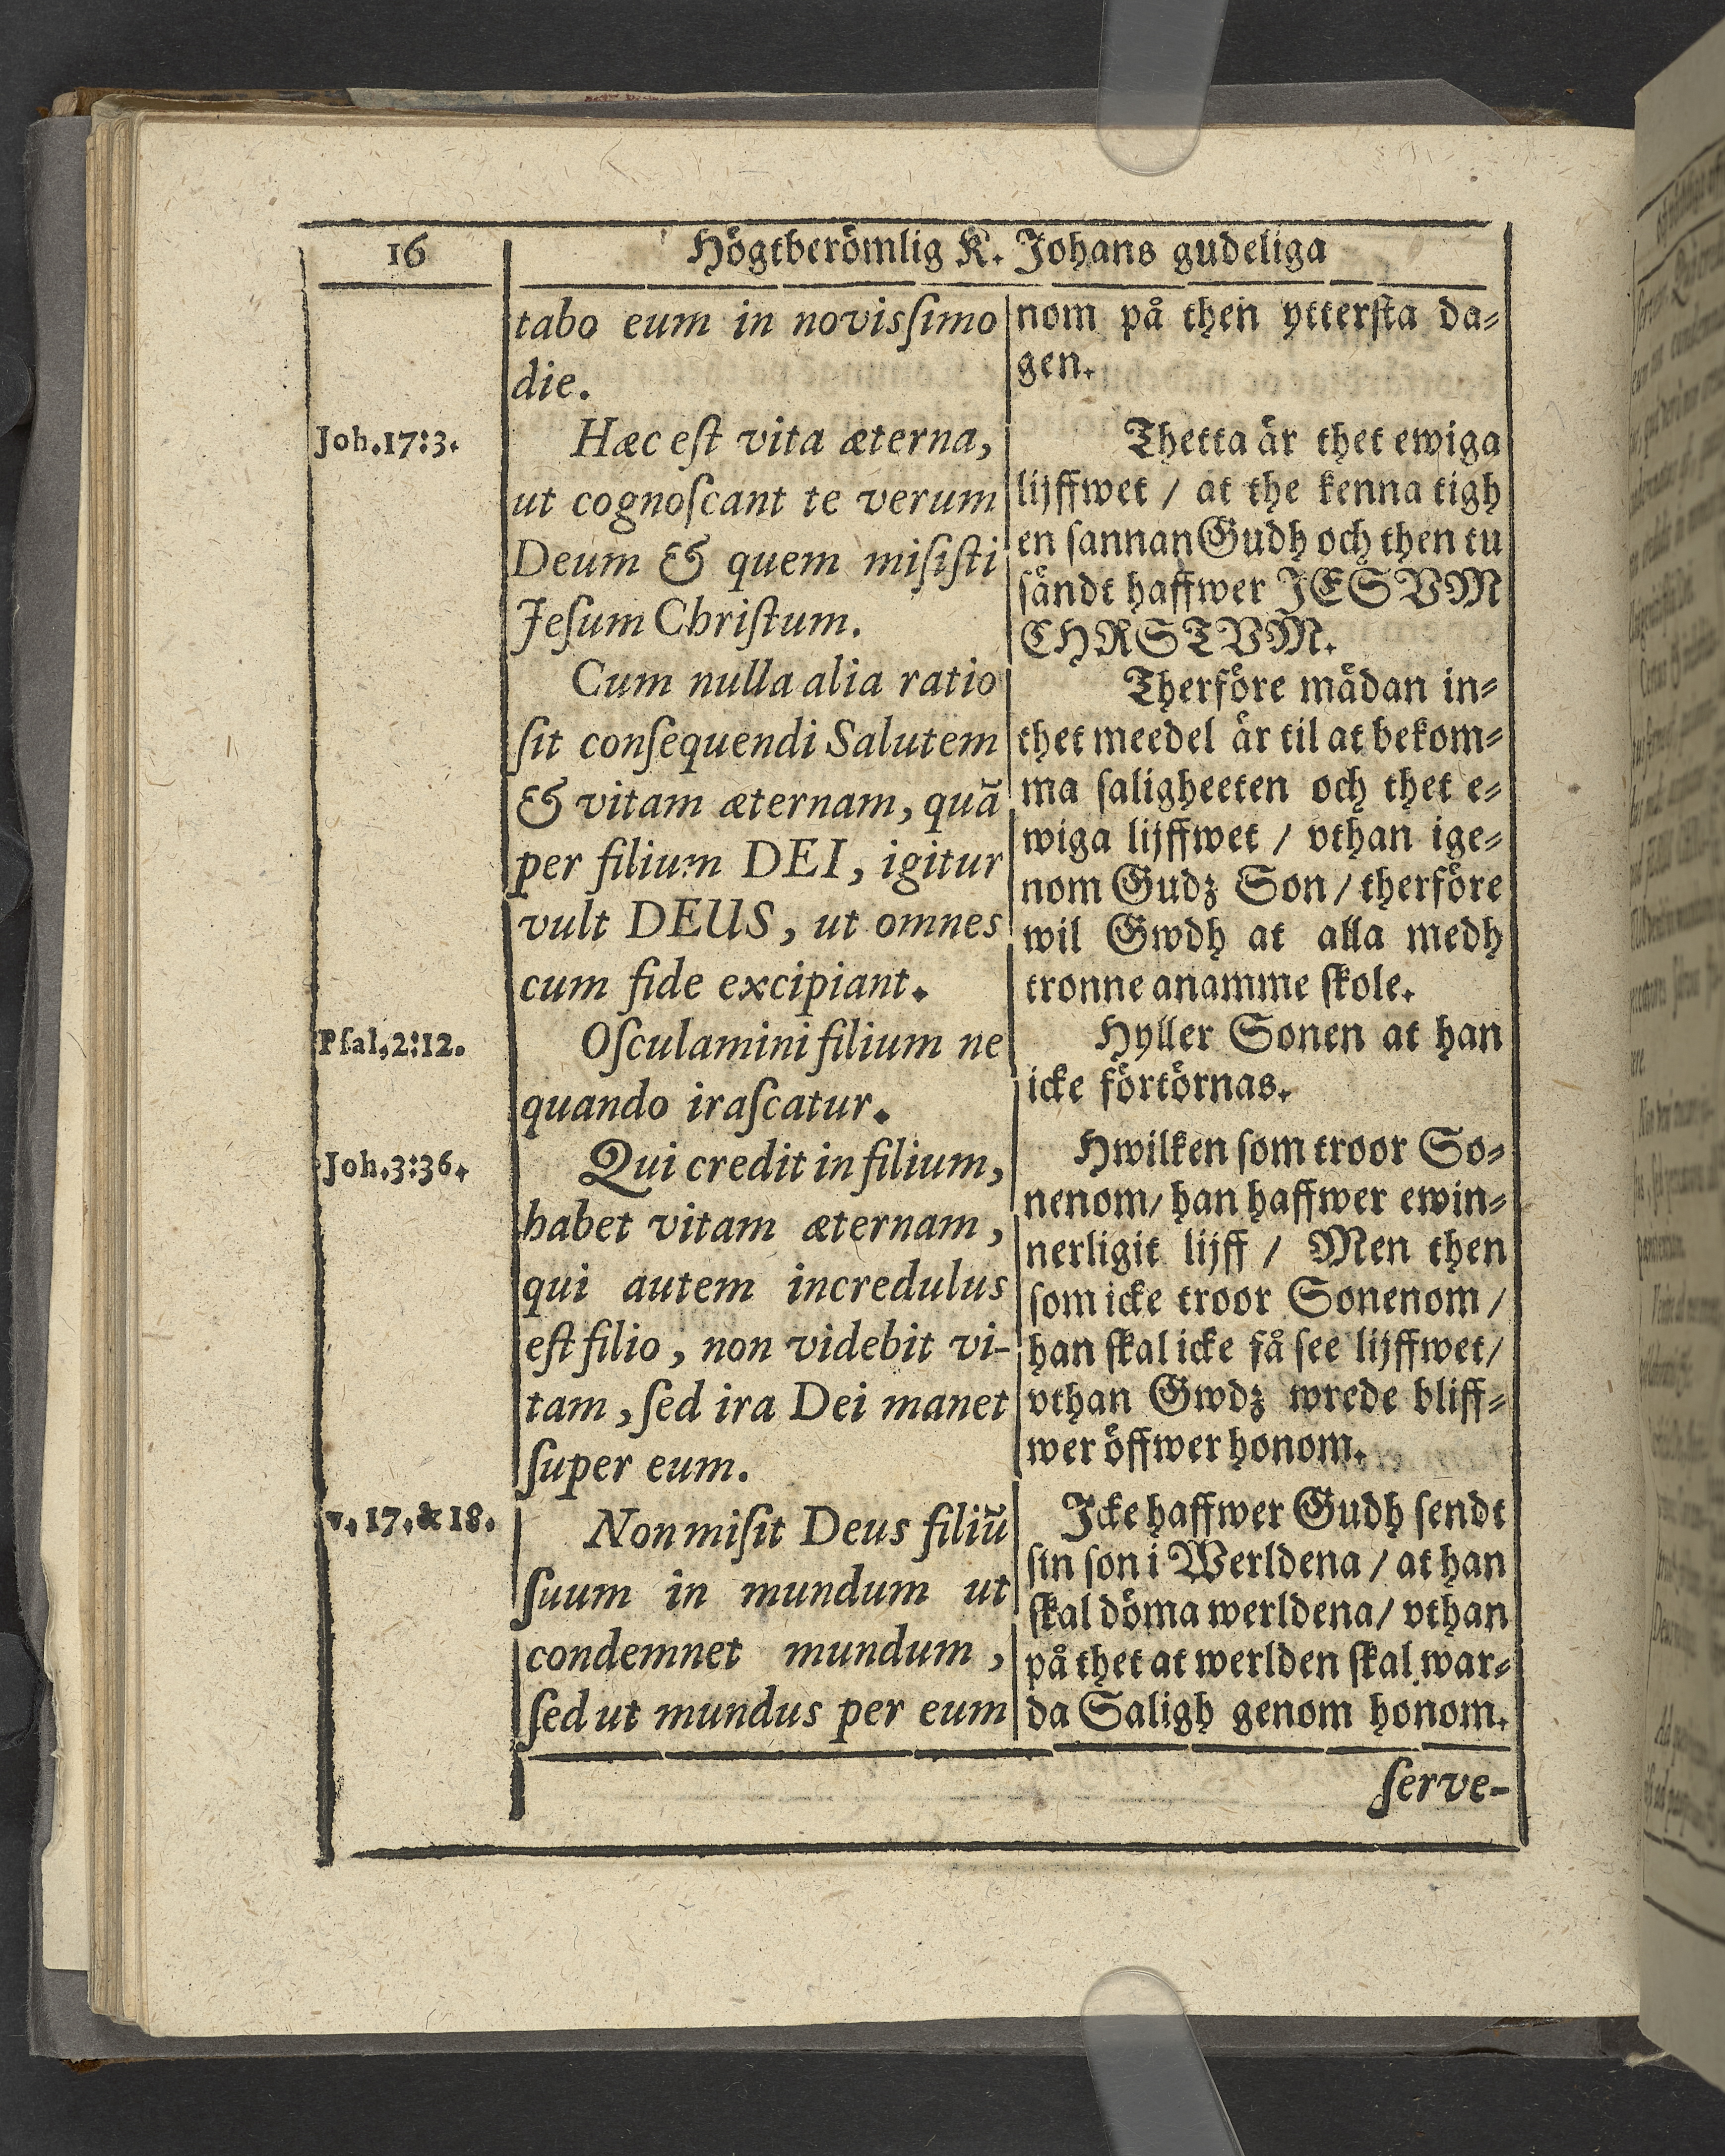 16
Högtberömlig K. Johans gudeliga
tabo eum in novisſimo
die.
Joh.17:3.
Hæc eſt vita æterna,
ut cognoſcant te verum
Deum & quem miſiſti
Jeſum Chriſtum.
Cum nulla alia ratio
ſit conſequendi Salutem
& vitam æternam, quã
per filium DEI, igitur
vult DEUS, ut omnes
cum fide excipiant.
Pſal.2:12.
Oſculamini filium ne
quando iraſcatur.
Joh.3:36.
Qui credit in filium,
habet vitam æternam,
qui autem incredulus
eſt filio, non videbit vi-
tam, ſed ira Dei manet
ſuper eum.
v.17.& 18.
Non miſit Deus filiũ
ſuum in mundum ut
condemnet mundum,
ſed ut mundus per eum
nom på then ytterſta da⸗
gen.
Thetta är thet ewiga
lijffwet / at the kenna tigh
en ſannan Gudh och then tu
ſändt haffwer JESVM
CHRSTVM.
Therföre mädan in⸗
thet meedel är til at bekom⸗
ma ſaligheeten och thet e⸗
wiga lijffwet / vthan ige⸗
nom Gudz Son / therföre
wil Gwdh at alla medh
tronne anamme ſkole.
Hyller Sonen at han
icke förtörnas.
Hwilken ſom troor So⸗
nenom/ han haffwer ewin⸗
nerligit lijff / Men then
ſom icke troor Sonenom /
han ſkal icke få ſee lijffwet/
vthan Gwdz wrede bliff⸗
wer öffwer honom.
Icke haffwer Gudh ſendt
ſin ſon i Werldena / at han
ſkal döma werldena/ vthan
på thet at werlden ſkal war⸗
da Saligh genom honom.
ſerve-